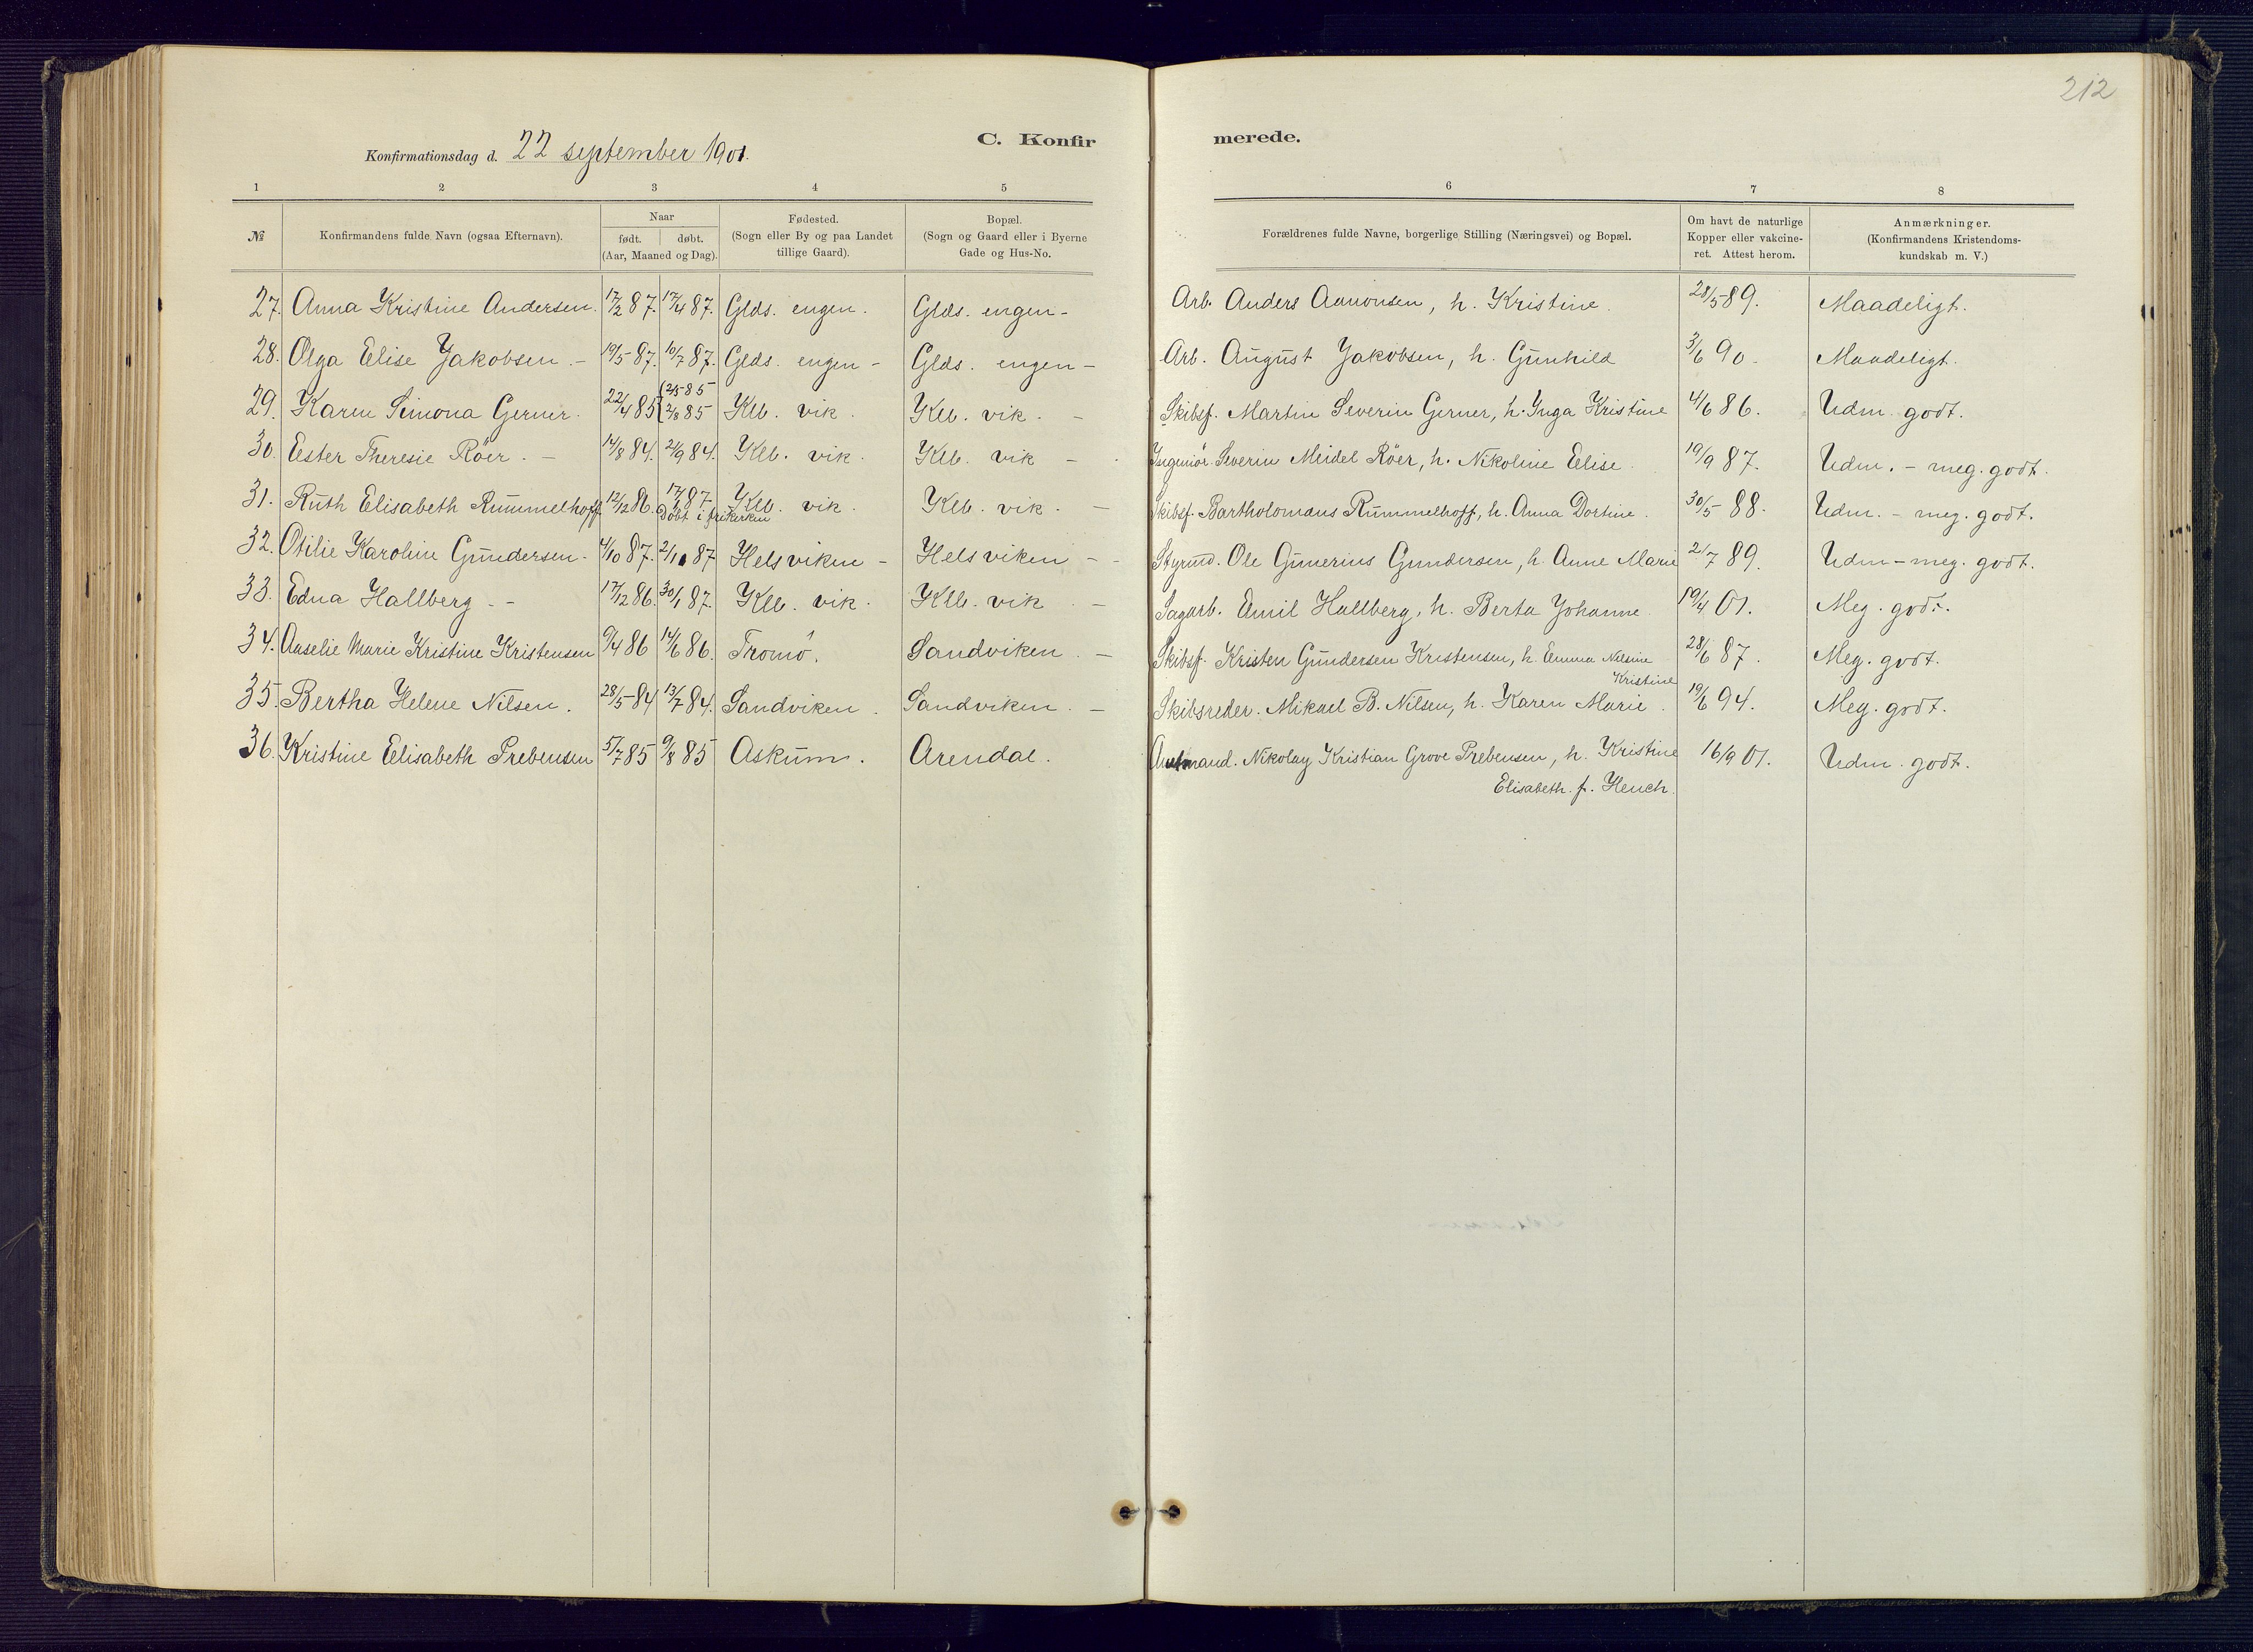 212
Konfirmationsdag d. 22 september 1901.
C. Konfir merede.
1 2 3 4 5 6 7 8
№ Konfirmandens fulde Navn (ogsaa Efternavn). Naar født. døbt. (Aar, Maaned og Dag). Fødested. (Sogn eller By og paa Landet tillige Gaard). Bopæl. (Sogn og Gaard eller i Byerne Gade og Hus-No. Forældrenes fulde Navne, borgerlige Stilling (Næringsvei) og Bopæl. Om havt de naturlige Kopper eller vakcineret. Attest herom. Anmærkninger. (Konfirmandens Kristendomskundskab m. V.)
27. Anna Kristine Andersen. 17/2 87. 17/4 87. Glds. engen. Glds. engen - Arb. Anders Aanonsen, h. Kristine. 28/5 89. Maadeligt.
28. Olga Elise Jakobsen. - 19/5 87. 10/7 87. Glds. engen - Glds. engen - Arb. August Jakobsen, h. Gunhild 3/6 90. Maadeligt.
29. Karen Simona Gerner. 22/4 85 (2/5 85 2/8 85 Klb. vik. Klb. vik. - Skibsf. Martin Severin Gerner, h. Inga Kristine 4/6 86. Udm. godt.
30. Ester Theresie Röer. - 14/8 84. 21/9 84. Klb. vik. Klb. vik - Ingeniör Severin Meidel Röer, h. Nikoline Elise. 19/9 87. Udm. - meg. godt.
31. Ruth Elisabeth Rummelhoff. 12/12 86. 87. Döbt i frikirken Klb. vik. Klb. vik. - Skibsf. Bartholomæus Rummelhoff, h. Anna Dortine. 30/5 88. Udm. - meg. godt.
32. Otilie Karoline Gundersen. 4/10 87. 87 Helsviken - Helsviken - Styrmd. Ole Gunerius Gundersen, h. Anne Marie 21/7 89. Udm - meg. godt.
33. Edna Hallberg. - 17/12 86. 30/1 87. Klb. vik. Klb. vik. - Sagarb. Emil Hallberg, h. Berta Johanne. 19/4 01. Meg. godt.
34. Aaselie Marie Kristine Kristensen 9/4 86 14/6 86. Tromö. Sandviken. - Skibsf. Kristen Gundersen Kristensen, h. Emma Nilsine Kristine 28/6 87. Meg. godt.
35. Bertha Helene Nilsen. 28/5 84 13/7 84. Sandviken. Sandviken. - Skibsreder. Mikael B. Nilsen, h. Karen Marie. 19/6 94. Meg. godt.
36. Kristine Elisabeth Prebensen 5/7 85 9/8 85 Askum. Arendal. Amtmand. Nikolay Kristian Grove Prebensen, h. Kristine Elisabeth. f. Heuch. 16/9 01. Udm. godt.